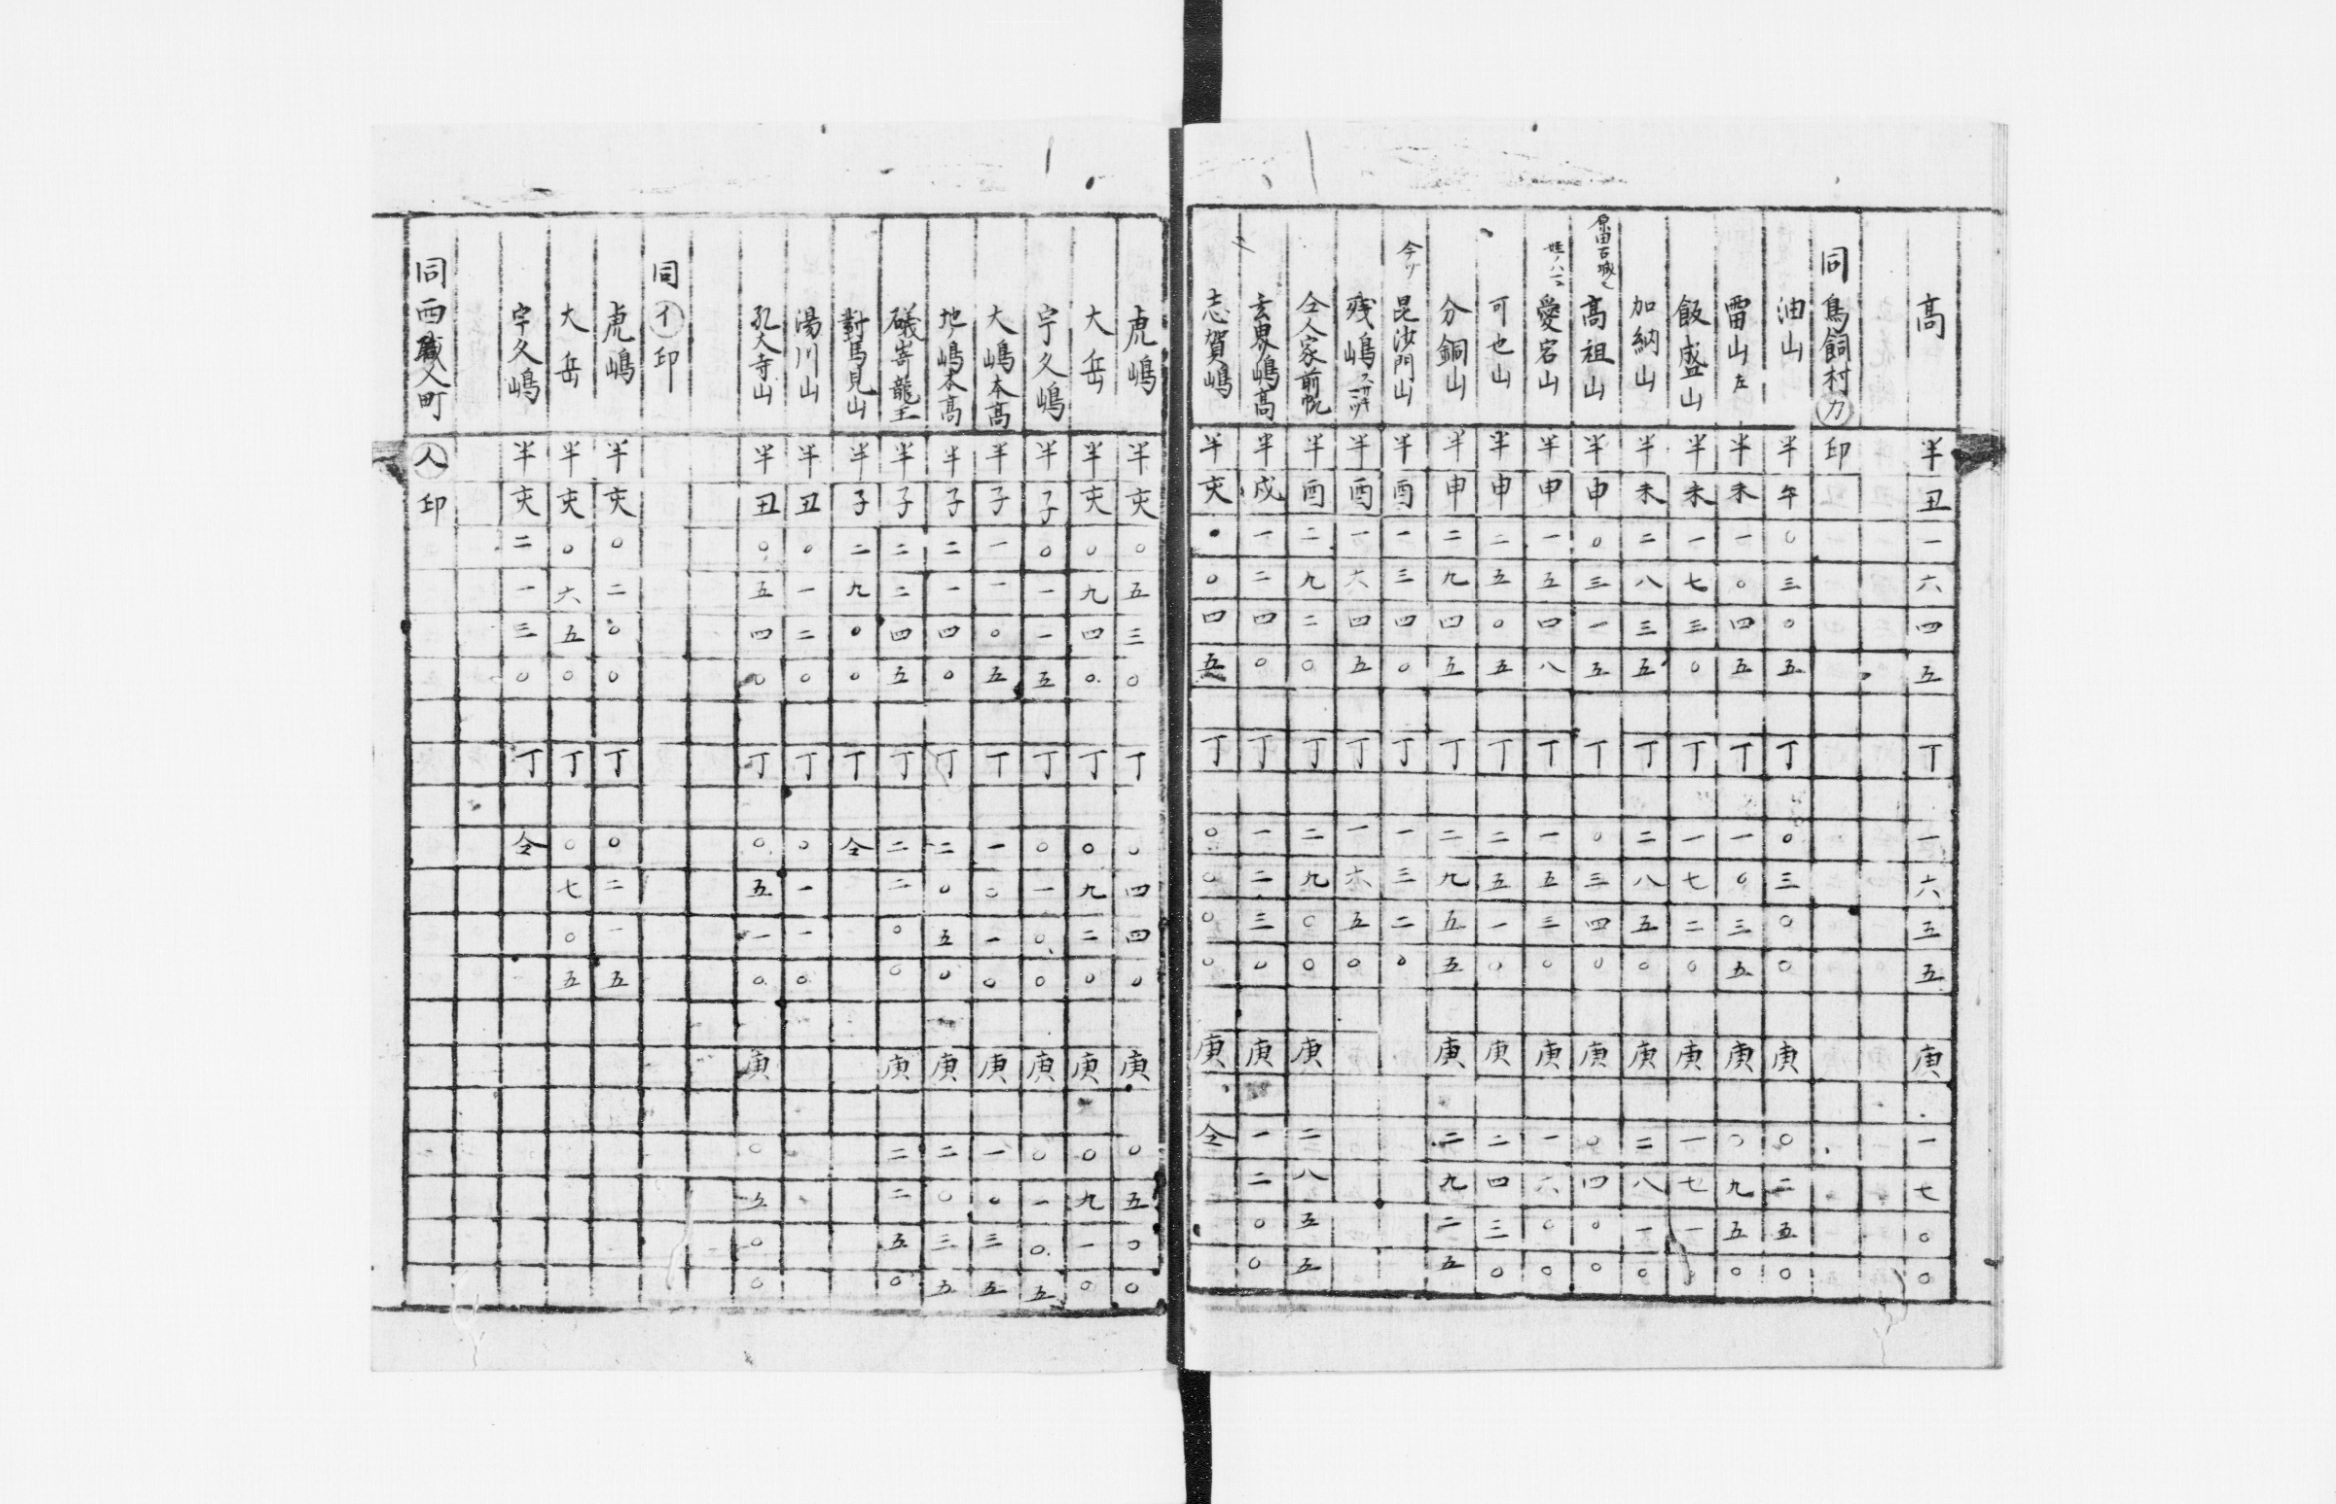 高 半丑一六四五 丁一六五五 庚一七〇〇
同鳥飼村カ印
油山 半午〇三〇五 丁〇三〇〇 庚〇二五〇
雷山左 半未一〇四五 丁一〇三五 庚〇九五〇
飯盛山 半未一七三〇 丁一七二〇 庚一七一
加納山 半未二八三五 丁二八五〇 庚二八一〇
高祖山 半申〇三一五 丁〇三四〇 庚〇四〇〇
愛宕山 半申一五四八 丁一五三〇 庚一六〇〇
可也山 半申二五〇五 丁二五一〇 庚二四三〇
分銅山 半申二九四五 丁二九五五 庚二九二五
昆沙門山 半酉一三四〇 丁一三二〇
残嶋 半酉一六四五 丁一六五〇
仝人家前帆 半酉二九二〇 丁二九〇〇 庚二八五五
玄界嶋高 半戌一二四〇 丁一二三〇 庚一二〇〇
志賀嶋 半亥〇〇四五 丁〇〇〇〇 庚仝
虎嶋 半亥〇五三〇 丁〇四四〇 庚〇五〇〇
大岳 半亥〇九四〇 丁〇九二〇 庚〇九一〇
宇久嶋 半子〇一一五 丁〇一〇〇 庚〇一〇五
大嶋本高 半子一一〇五 丁一〇一〇 庚一〇三五
地嶋本高 半子二一四〇 丁二〇五〇 庚二〇三五
礒嵜龍王 半子二二四五 丁二二〇〇 庚二二五〇
對馬見山 半子二九〇〇 丁仝
湯川山 半丑〇一二〇 丁〇一一〇
孔大寺山 半丑〇五四〇 丁〇五一〇 庚〇五〇〇
同イ印
虎嶋 半亥〇二〇〇 丁〇二一五
大岳 半亥〇六五〇 丁〇七〇五
宇久嶋 半亥二一三〇 丁仝
同西職人町人印